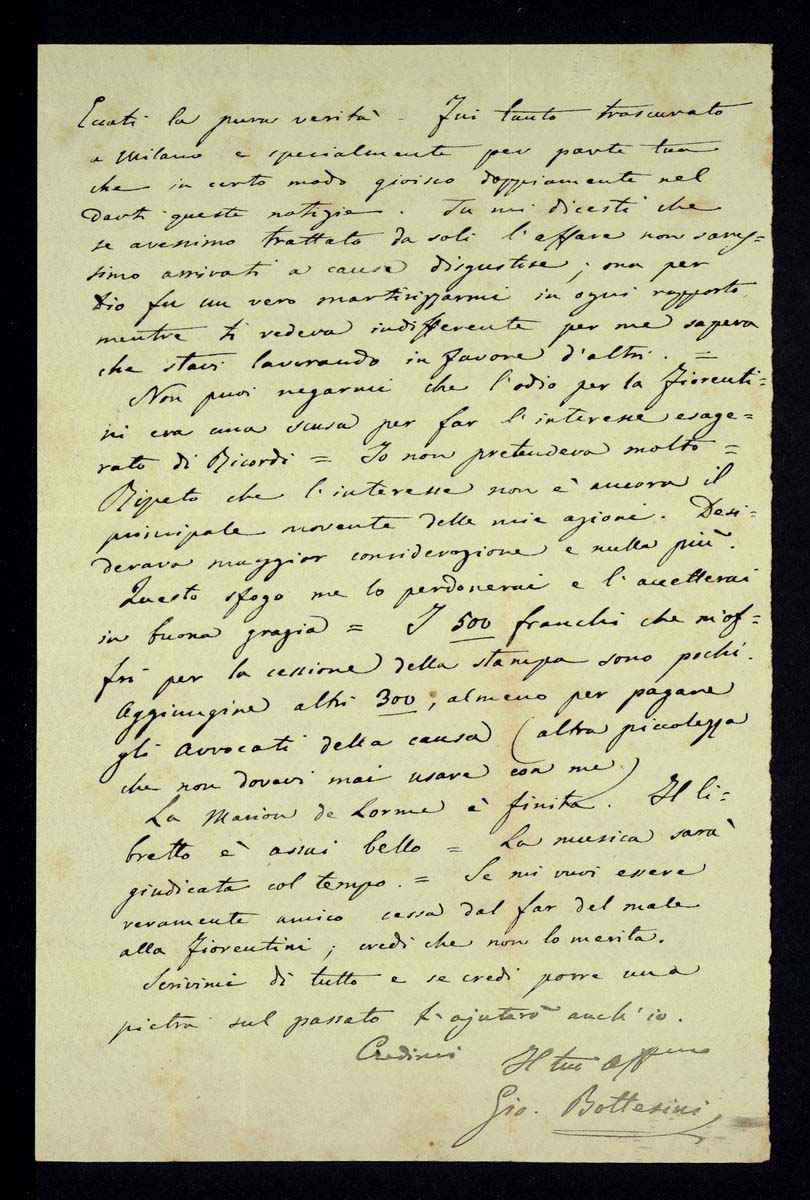 Eccoti la pura verità - Fui tanto trascurato
a Milano e specialmente per parte tua
che in certo modo gioisco doppiamente nel
darti queste notizie. Tu mi dicesti che
se avessimo trattato da soli l'affare non saress=
simo arrivati a cause disgustose; ma per
Dio fu un vero martirizzarmi in ogni rapporto,
mentre ti vedeva indifferente per me sapeva
che stavi lavorando in favore d'altri. =
Non puoi negarmi che l'odio per la Fiorenti=
ni era una scusa per far l'interesse esage=
rato di Ricordi = Io non pretendeva molto =
Ripeto che l'interesse non è ancora il
principale movente delle mie azioni. Desi=
derava maggior considerazione e nulla più.
Questo sfogo me lo perdonerai e l'accetterai
in buona grazia = I 500 franchi che m'of=
frì per la cessione della stampa sono pochi.
Aggiungine altri 300, almeno per pagare
gli Avvocati della causa (altra piccolezza
che non dovevi mai usare con me.)
La Marion de Lorme è finita. Il li=
bretto è assai bello = La musica sarà
giudicata col tempo. = Se mi vuoi essere
veramente amico cessa dal far del male
alla Fiorentini; credi che non lo merita.
Scrivimi di tutto e se credi porre una
pietra sul passato t'ajuterò anch'io.
Credimi Il tuo affmo
Gio. Bottesini